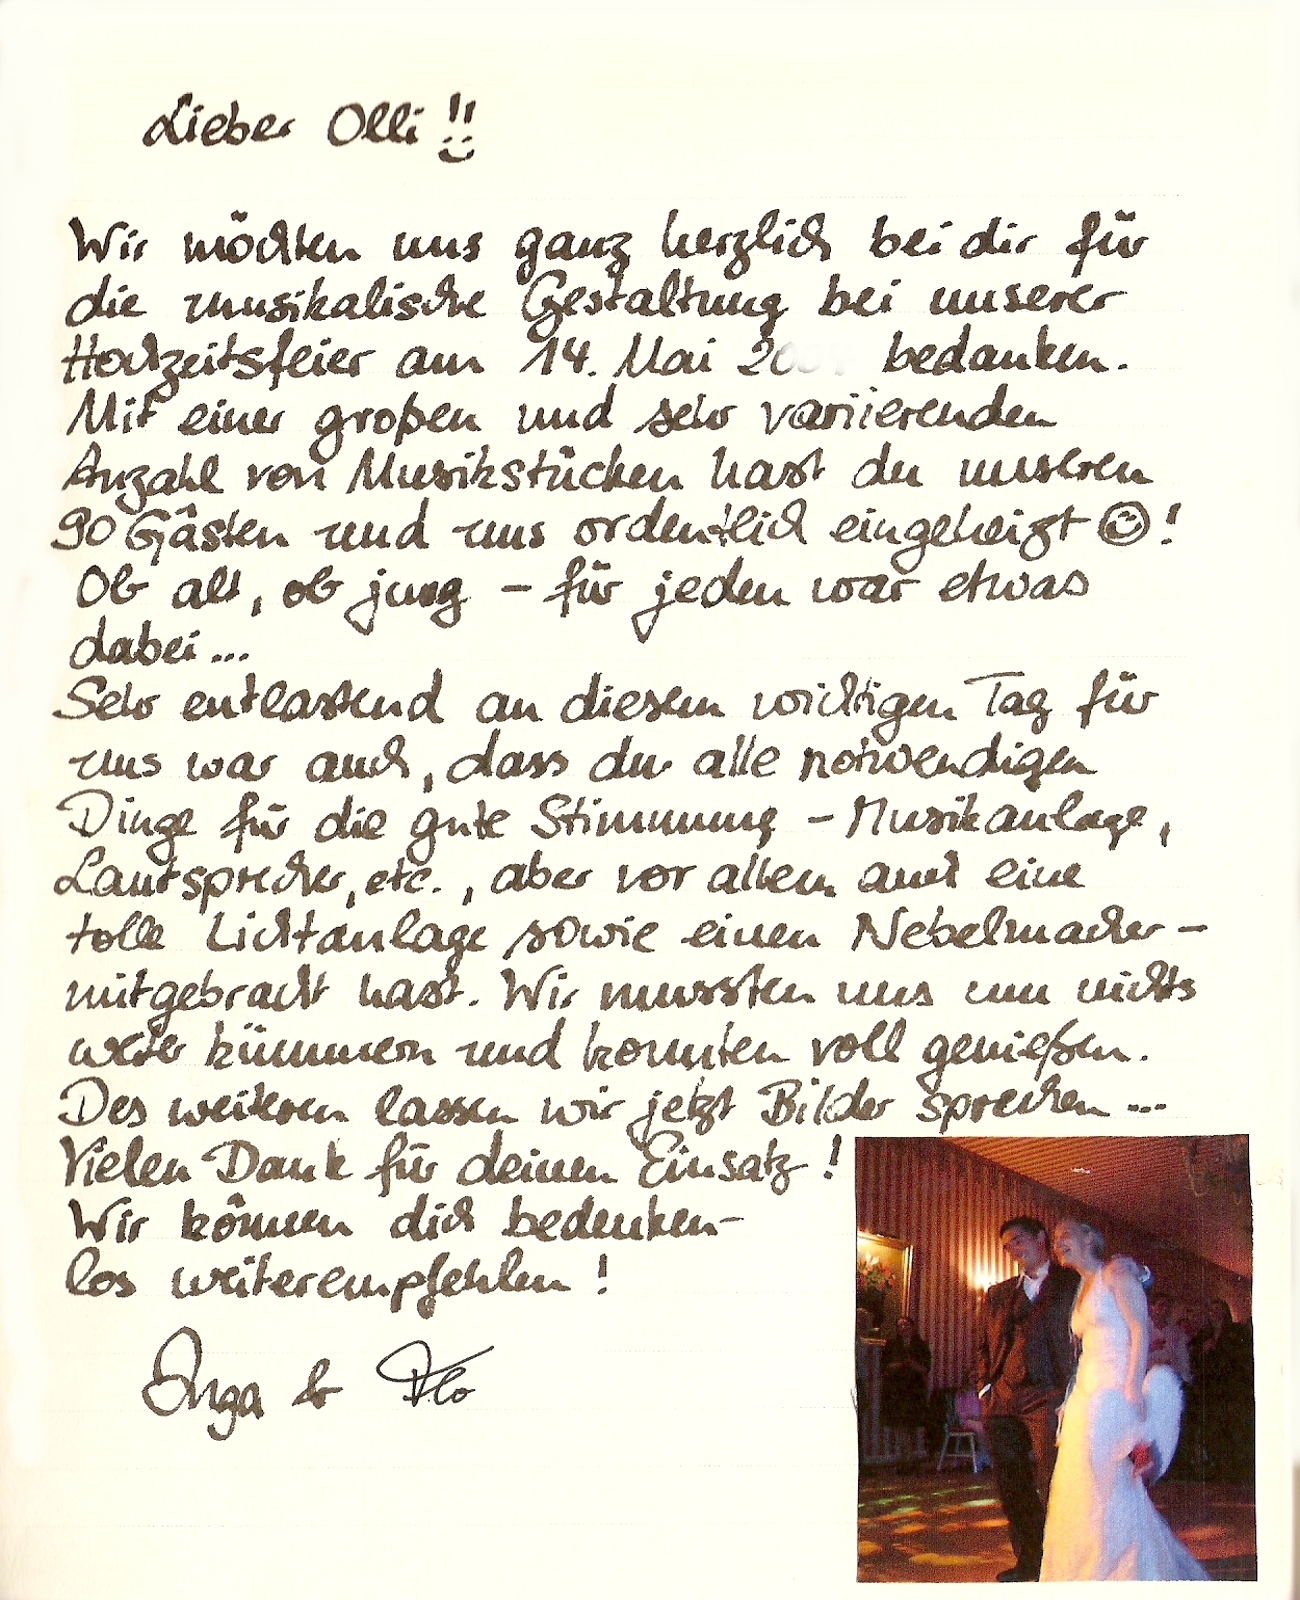 Lieber Olli !!
Wir möchten uns ganz herzlich bei dir für
die musikalische Gestaltung bei unserer
Hochzeitsfeier am 14. Mai bedanken.
Mit einer großen und sehr variierenden
Anzahl von Musikstücken hast du unseren
90 Gästen und uns ordentlich eingeheizt ☺!
Ob alt, ob jung – für jeden war etwas
dabei...
Sehr entlastend an diesem wichtigen Tag für
uns war auch, dass du alle notwendigen
Dinge für die gute Stimmung – Musikanlage,
Lautsprecher, etc., aber vor allem auch eine
tolle Lichtanlage sowie einen Nebelmacher –
mitgebracht hast. Wir mussten uns um nichts
weiter kümmern und konnten voll genießen.
Des weiteren lassen wir jetzt Bilder sprechen...
Vielen Dank für deinen Einsatz!
Wir können dich bedenken-
los weiterempfehlen!
Inga & Flo